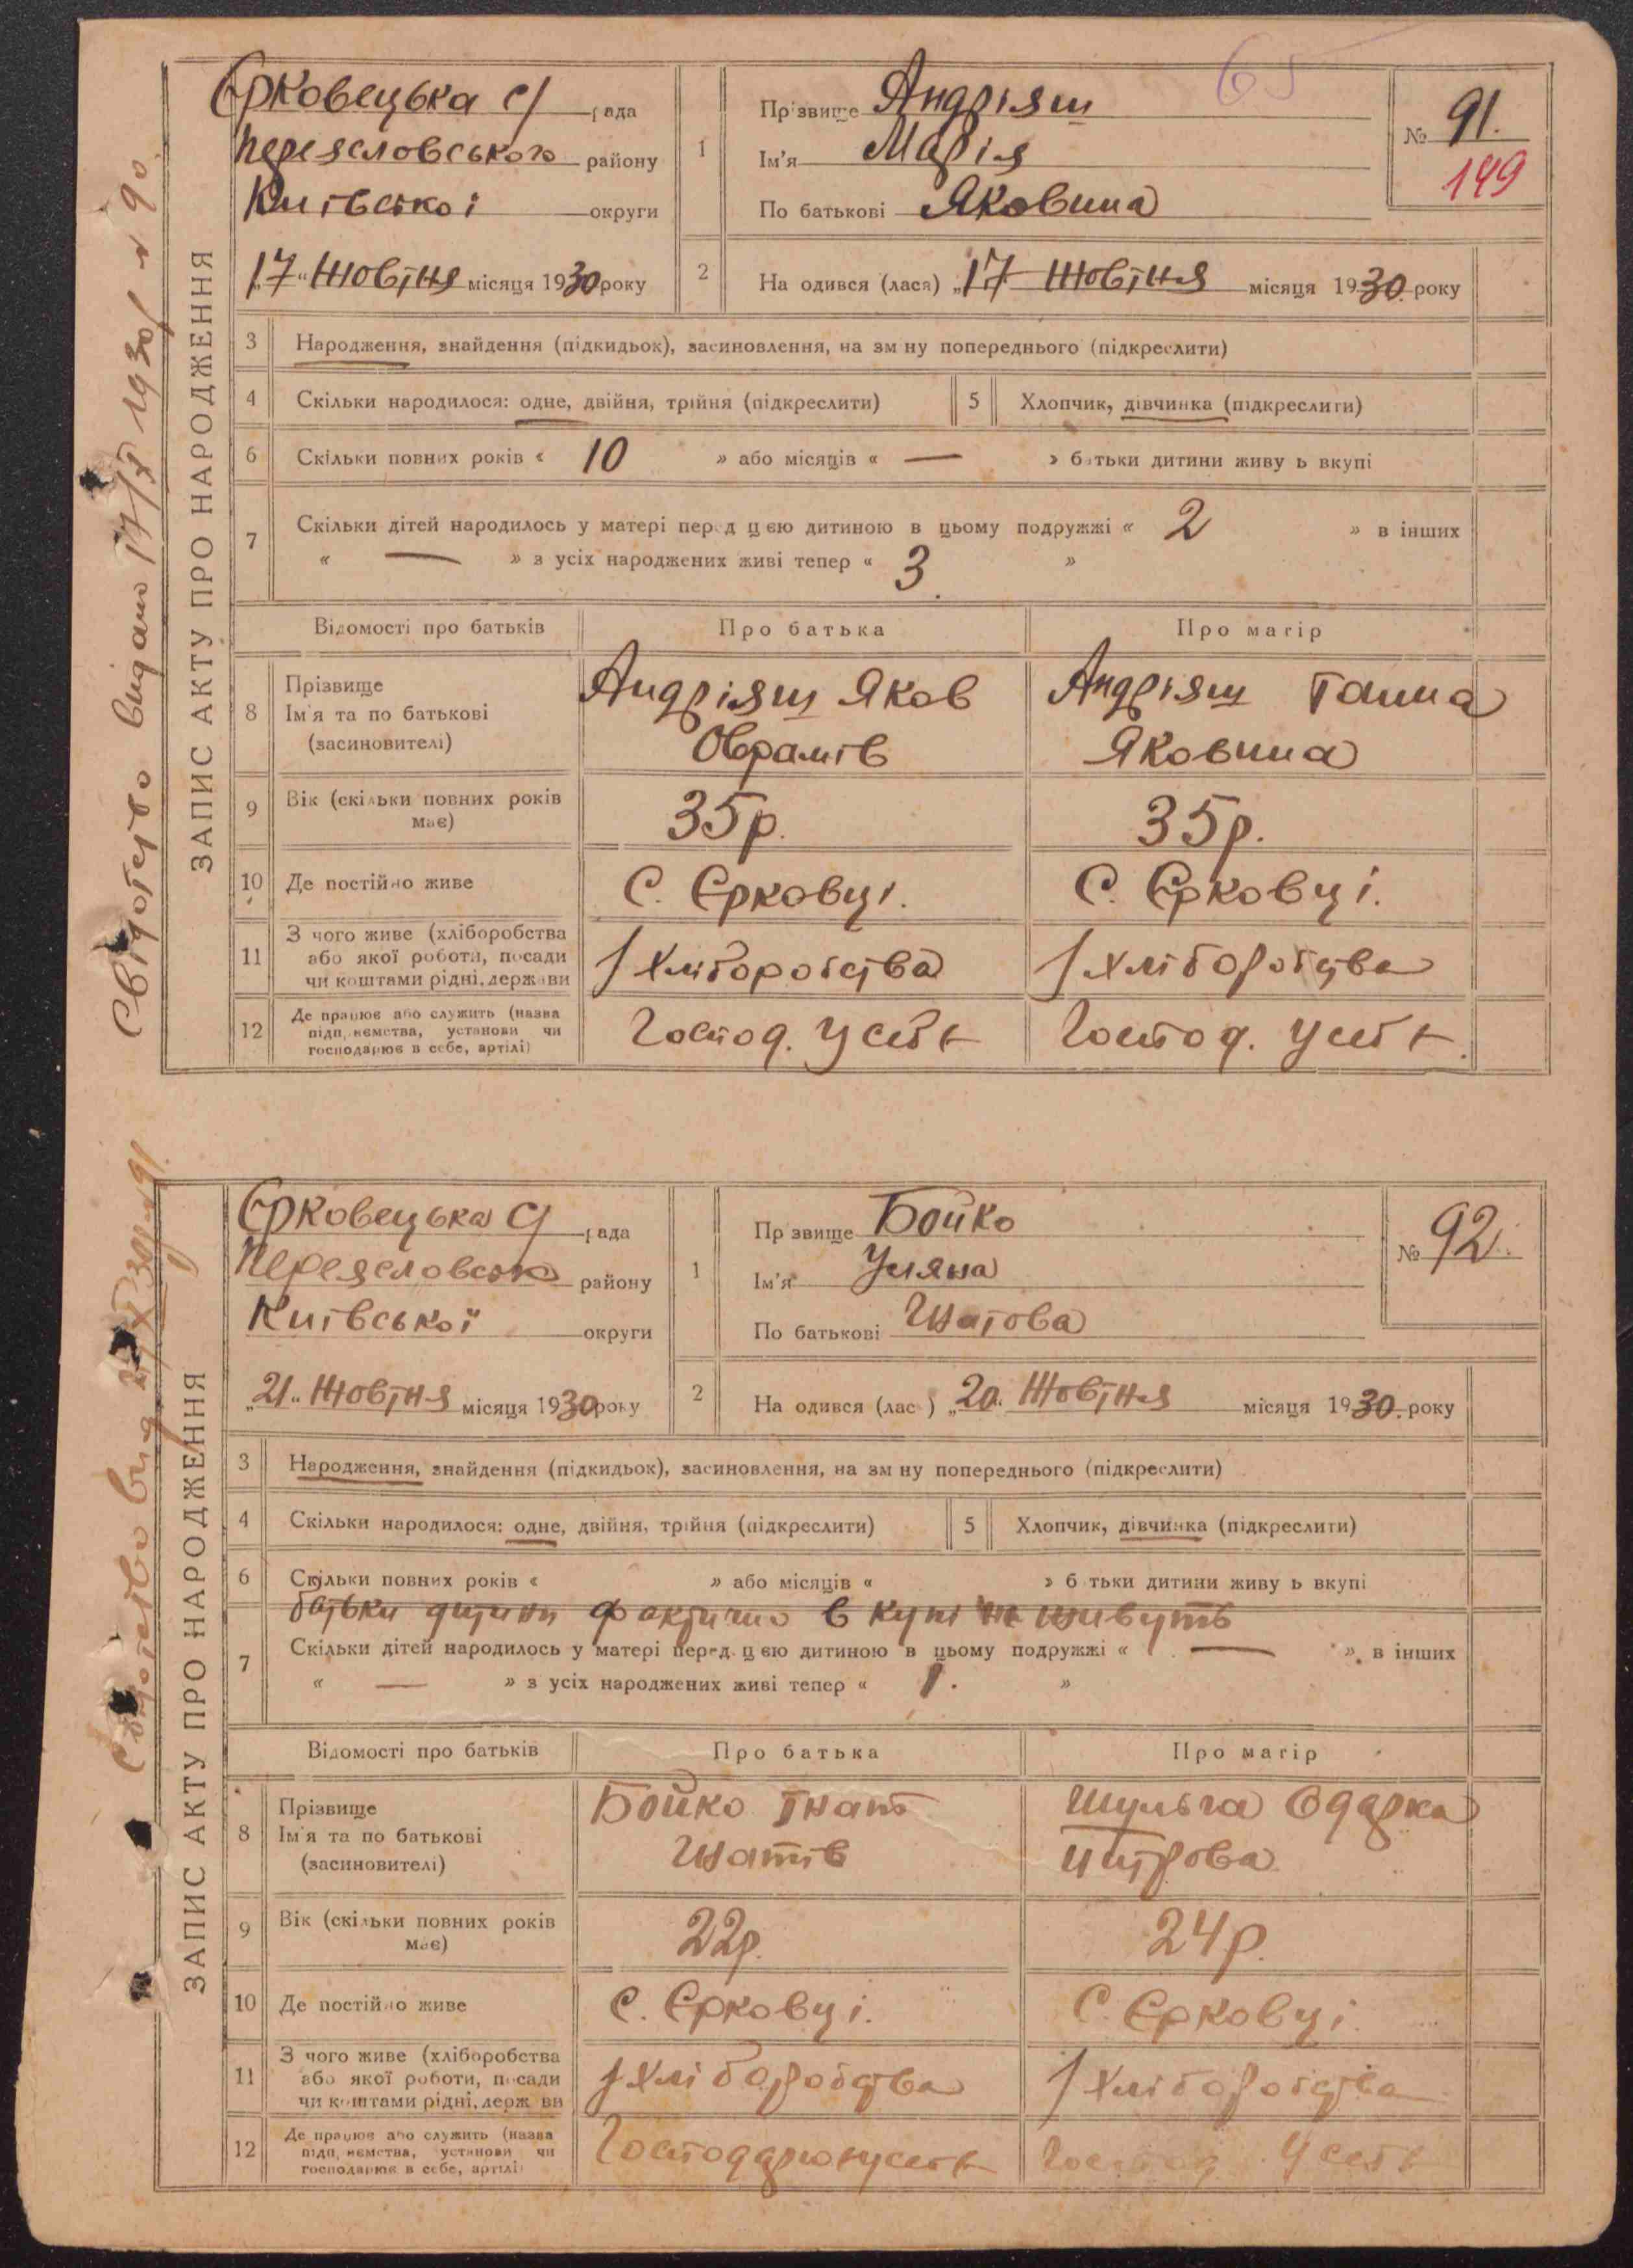 65
Єрковецька с/рада
Переясловського району
Київської округи
„17“ Жовтня місяця 1930 року
1 Прізвище Андріяш
Ім'я Марія
По батькові Яковина
№ 91.
149
2 На одився (лася) „17 Жовтня місяця 1930 року
3 Народження, знайдення (підкидьок), засиновлення, на зм ну попереднього (підкреслити)
4 Скільки народилося: одне, двійня, трійня (підкреслити) 5 Хлопчик, дівчинка (підкреслити)
6 Скільки повних років « 10 » або місяців « — » батьки дитини живу ь вкупі
7 Скільки дітей народилось у матері перед цею дитиною в цьому подружжі « 2 » в інших
« — » з усіх народжених живі тепер « 3. »
Відомості про батьків Про батька Про матір
8 Прізвище
Ім'я та по батькові
(засиновителі)
Андріяш Яков
Оврамів
Андріяш Ганна
Яковина
9 Вік (скільки повних років
має)
35р. 35р.
10 Де постійно живе С. Єрковці. С. Єрковці.
11 З чого живе (хліборобства
або якої роботи, посади
чи коштами рідні, держави
з хліборобства з хліборобства
12 Де працює або служить (назва
підп, ємства, установи чи
господарює в себе, артілі)
Господ. У себе Господ. У себе.
ЗАПИС АКТУ ПРО НАРОДЖЕННЯ
Свідотство видано 17/X 1930 № 90.
Єрковецька с/рада
Переясловсько району
Київської округи
„21“ Жовтня місяця 1930 року
1 Пр звище Бойко
Ім'я Уляна
По батькові Гнатова
№ 92.
2 На одився (лас ) „20. Жовтня місяця 1930. року
3 Народження, знайдення (підкидьок), засиновлення, на зм ну попереднього (підкреслити)
4 Скільки народилося: одне, двійня, трійня (підкреслити) 5 Хлопчик, дівчинка (підкреслити)
6 Скільки повних років « » або місяців « » б тьки дитини живу ь вкупі
батьки дитини фактично в купі не живуть
7 Скільки дітей народилось у матері перед цею дитиною в цьому подружжі « — » в інших
« — » з усіх народжених живі тепер « 1. »
Відомості про батьків Про батька Про матір
8 Прізвище
Ім'я та по батькові
(засиновителі)
Бойко Гнат
Гнатів
Шульга Одарка
9 Вік (скільки повних років
має)
22р. 24р.
10 Де постійно живе С. Єрковці. С. Єрковці.
11 З чого живе (хліборобства
або якої роботи, посади
чи коштами рідні, держ ви
з хліборобства з хліборобства
12 Де працює або служить (назва
підп, ємства, установи чи
господарює в себе, артілі)
Господарює у себе Господ. У себе
ЗАПИС АКТУ ПРО НАРОДЖЕННЯ